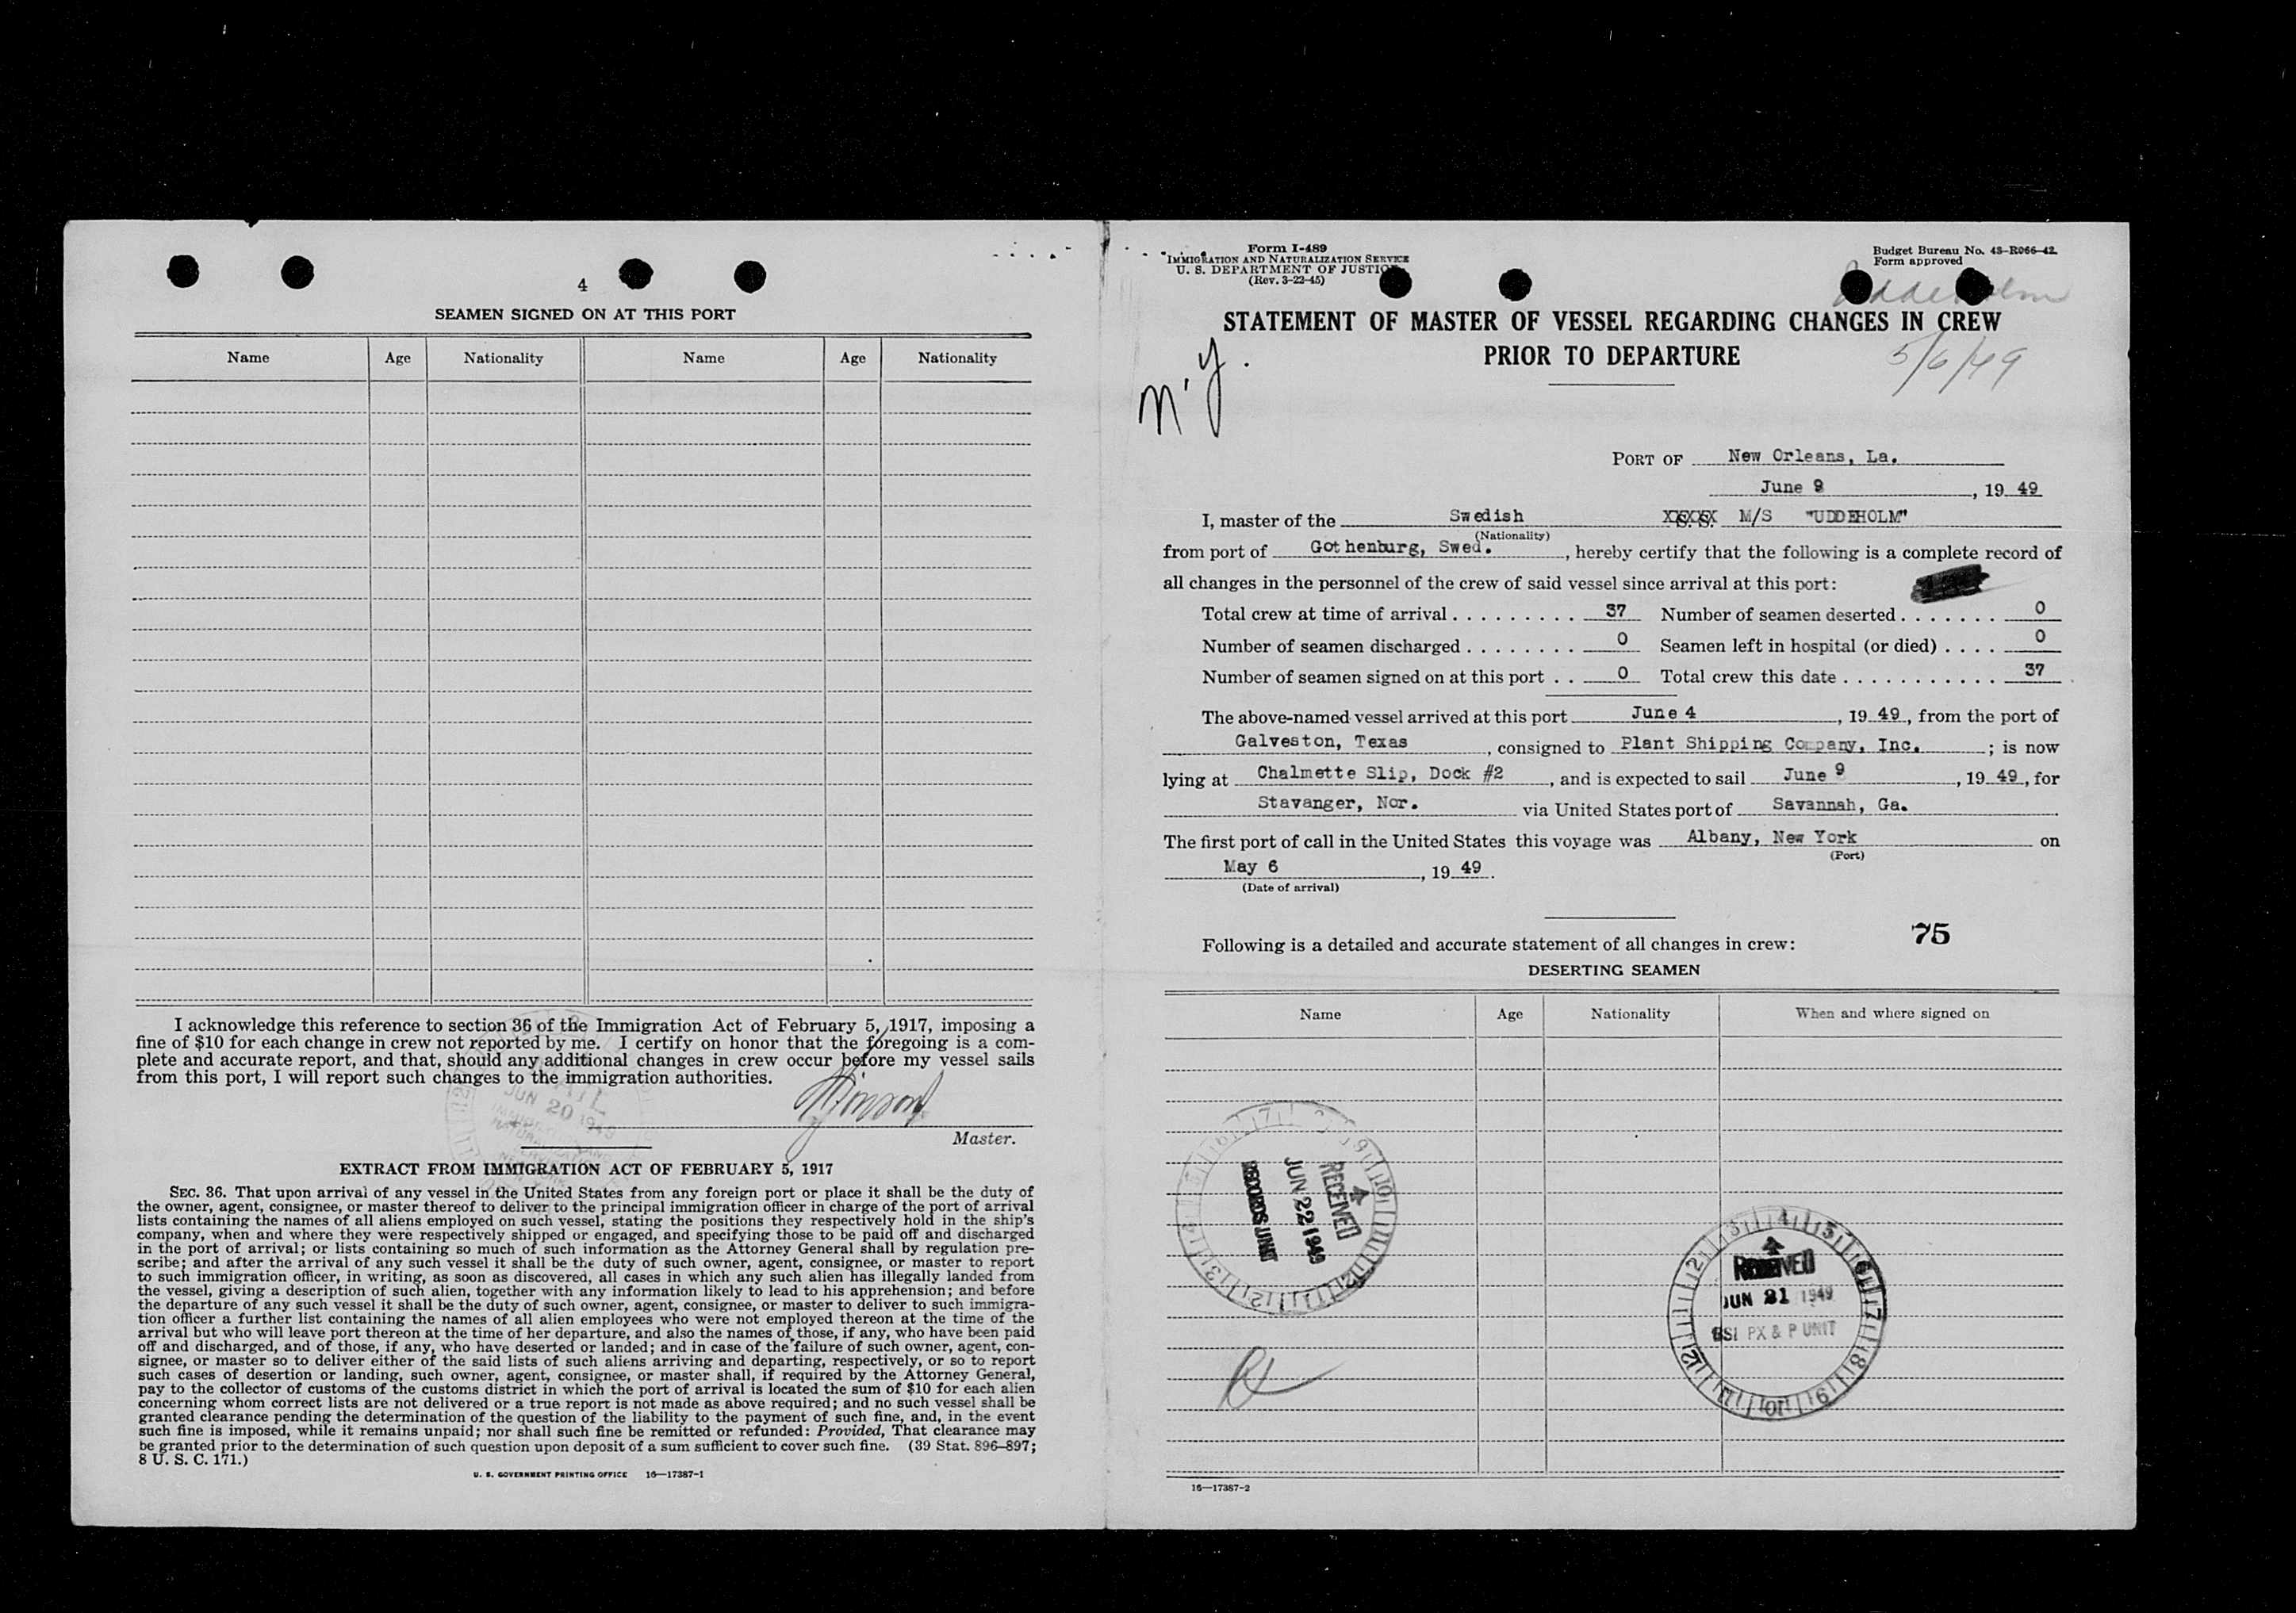 4
SEAMEN SIGNED ON AT THIS PORT
Name Age Nationality Name Age Nationality
I acknowledge this reference to section 36 of the Immigration Act of February 5, 1917, imposing a
fine of $10 for each change in crew not reported by me. I certify on honor that the foregoing is a com-
plete and accurate report, and that, should any additional changes in crew occur before my vessel sails
from this port, I will report such changes to the immigration authorities.
JUN 20 1949
Master.
EXTRACT FROM IMMIGRATION ACT OF FEBRUARY 5, 1917
SEC. 36. That upon arrival of any vessel in the United States from any foreign port or place it shall be the duty of
the owner, agent, consignee, or master thereof to deliver to the principal immigration officer in charge of the port of arrival
lists containing the names of all aliens employed on such vessel, stating the positions they respectively hold in the ship's
company, when and where they were respectively shipped or engaged, and specifying those to be paid off and discharged
in the port of arrival; or lists containing so much of such information as the Attorney General shall by regulation pre-
scribe; and after the arrival of any such vessel it shall be the duty of such owner, agent, consignee, or master to report
to such immigration officer, in writing, as soon as discovered, all cases in which any such alien has illegally landed from
the vessel, giving a description of such alien, together with any information likely to lead to his apprehension; and before
the departure of any such vessel it shall be the duty of such owner, agent, consignee, or master to deliver to such immigra-
tion officer a further list containing the names of all alien employees who were not employed thereon at the time of the
arrival but who will leave port thereon at the time of her departure, and also the names of those, if any, who have been paid
off and discharged, and of those, if any, who have deserted or landed; and in case of the failure of such owner, agent, con-
signee, or master so to deliver either of the said lists of such aliens arriving and departing, respectively, or so to report
such cases of desertion or landing, such owner, agent, consignee, or master shall, if required by the Attorney General,
pay to the collector of customs of the customs district in which the port of arrival is located the sum of $10 for each alien
concerning whom correct lists are not delivered or a true report is not made as above required; and no such vessel shall be
granted clearance pending the determination of the question of the liability to the payment of such fine, and, in the event
such fine is imposed, while it remains unpaid; nor shall such fine be remitted or refunded: Provided, That clearance may
be granted prior to the determination of such question upon deposit of a sum sufficient to cover such fine. (39 Stat. 896–897;
8 U. S. C. 171.)
U. S. GOVERNMENT PRINTING OFFICE 16—17387-1
Form I-489
IMMIGRATION AND NATURALIZATION SERVICE
U. S. DEPARTMENT OF JUSTICE
(Rev. 3-22-45)
Budget Bureau No. 43-R066-42.
Form approved
Uddeholm
STATEMENT OF MASTER OF VESSEL REGARDING CHANGES IN CREW
PRIOR TO DEPARTURE
5/6/49
N.Y.
PORT OF New Orleans, La.
June 9, 19 49
I, master of the Swedish M/S "UDDEHOLM"
(Nationality)
from port of Gothenburg, Swed., hereby certify that the following is a complete record of
all changes in the personnel of the crew of said vessel since arrival at this port:
Total crew at time of arrival . . . . . . . . . . 37 Number of seamen deserted . . . . . . . 0
Number of seamen discharged . . . . . . . . 0 Seamen left in hospital (or died) . . . . 0
Number of seamen signed on at this port . . 0 Total crew this date . . . . . . . . . . . 37
The above-named vessel arrived at this port June 4, 19 49, from the port of
Galveston, Texas, consigned to Plant Shipping Company, Inc. ; is now
lying at Chalmette Slip, Dock #2, and is expected to sail June 9, 19 49, for
Stavanger, Nor. via United States port of Savannah, Ga.
The first port of call in the United States this voyage was Albany, New York on
(Port)
May 6, 19 49.
(Date of arrival)
75
Following is a detailed and accurate statement of all changes in crew:
DESERTING SEAMEN
Name Age Nationality When and where signed on
RECEIVED
JUN 22 1949
RECORDS UNIT
RECEIVED
JUN 21 1949
BSI PX & P UNIT
16—17387-2